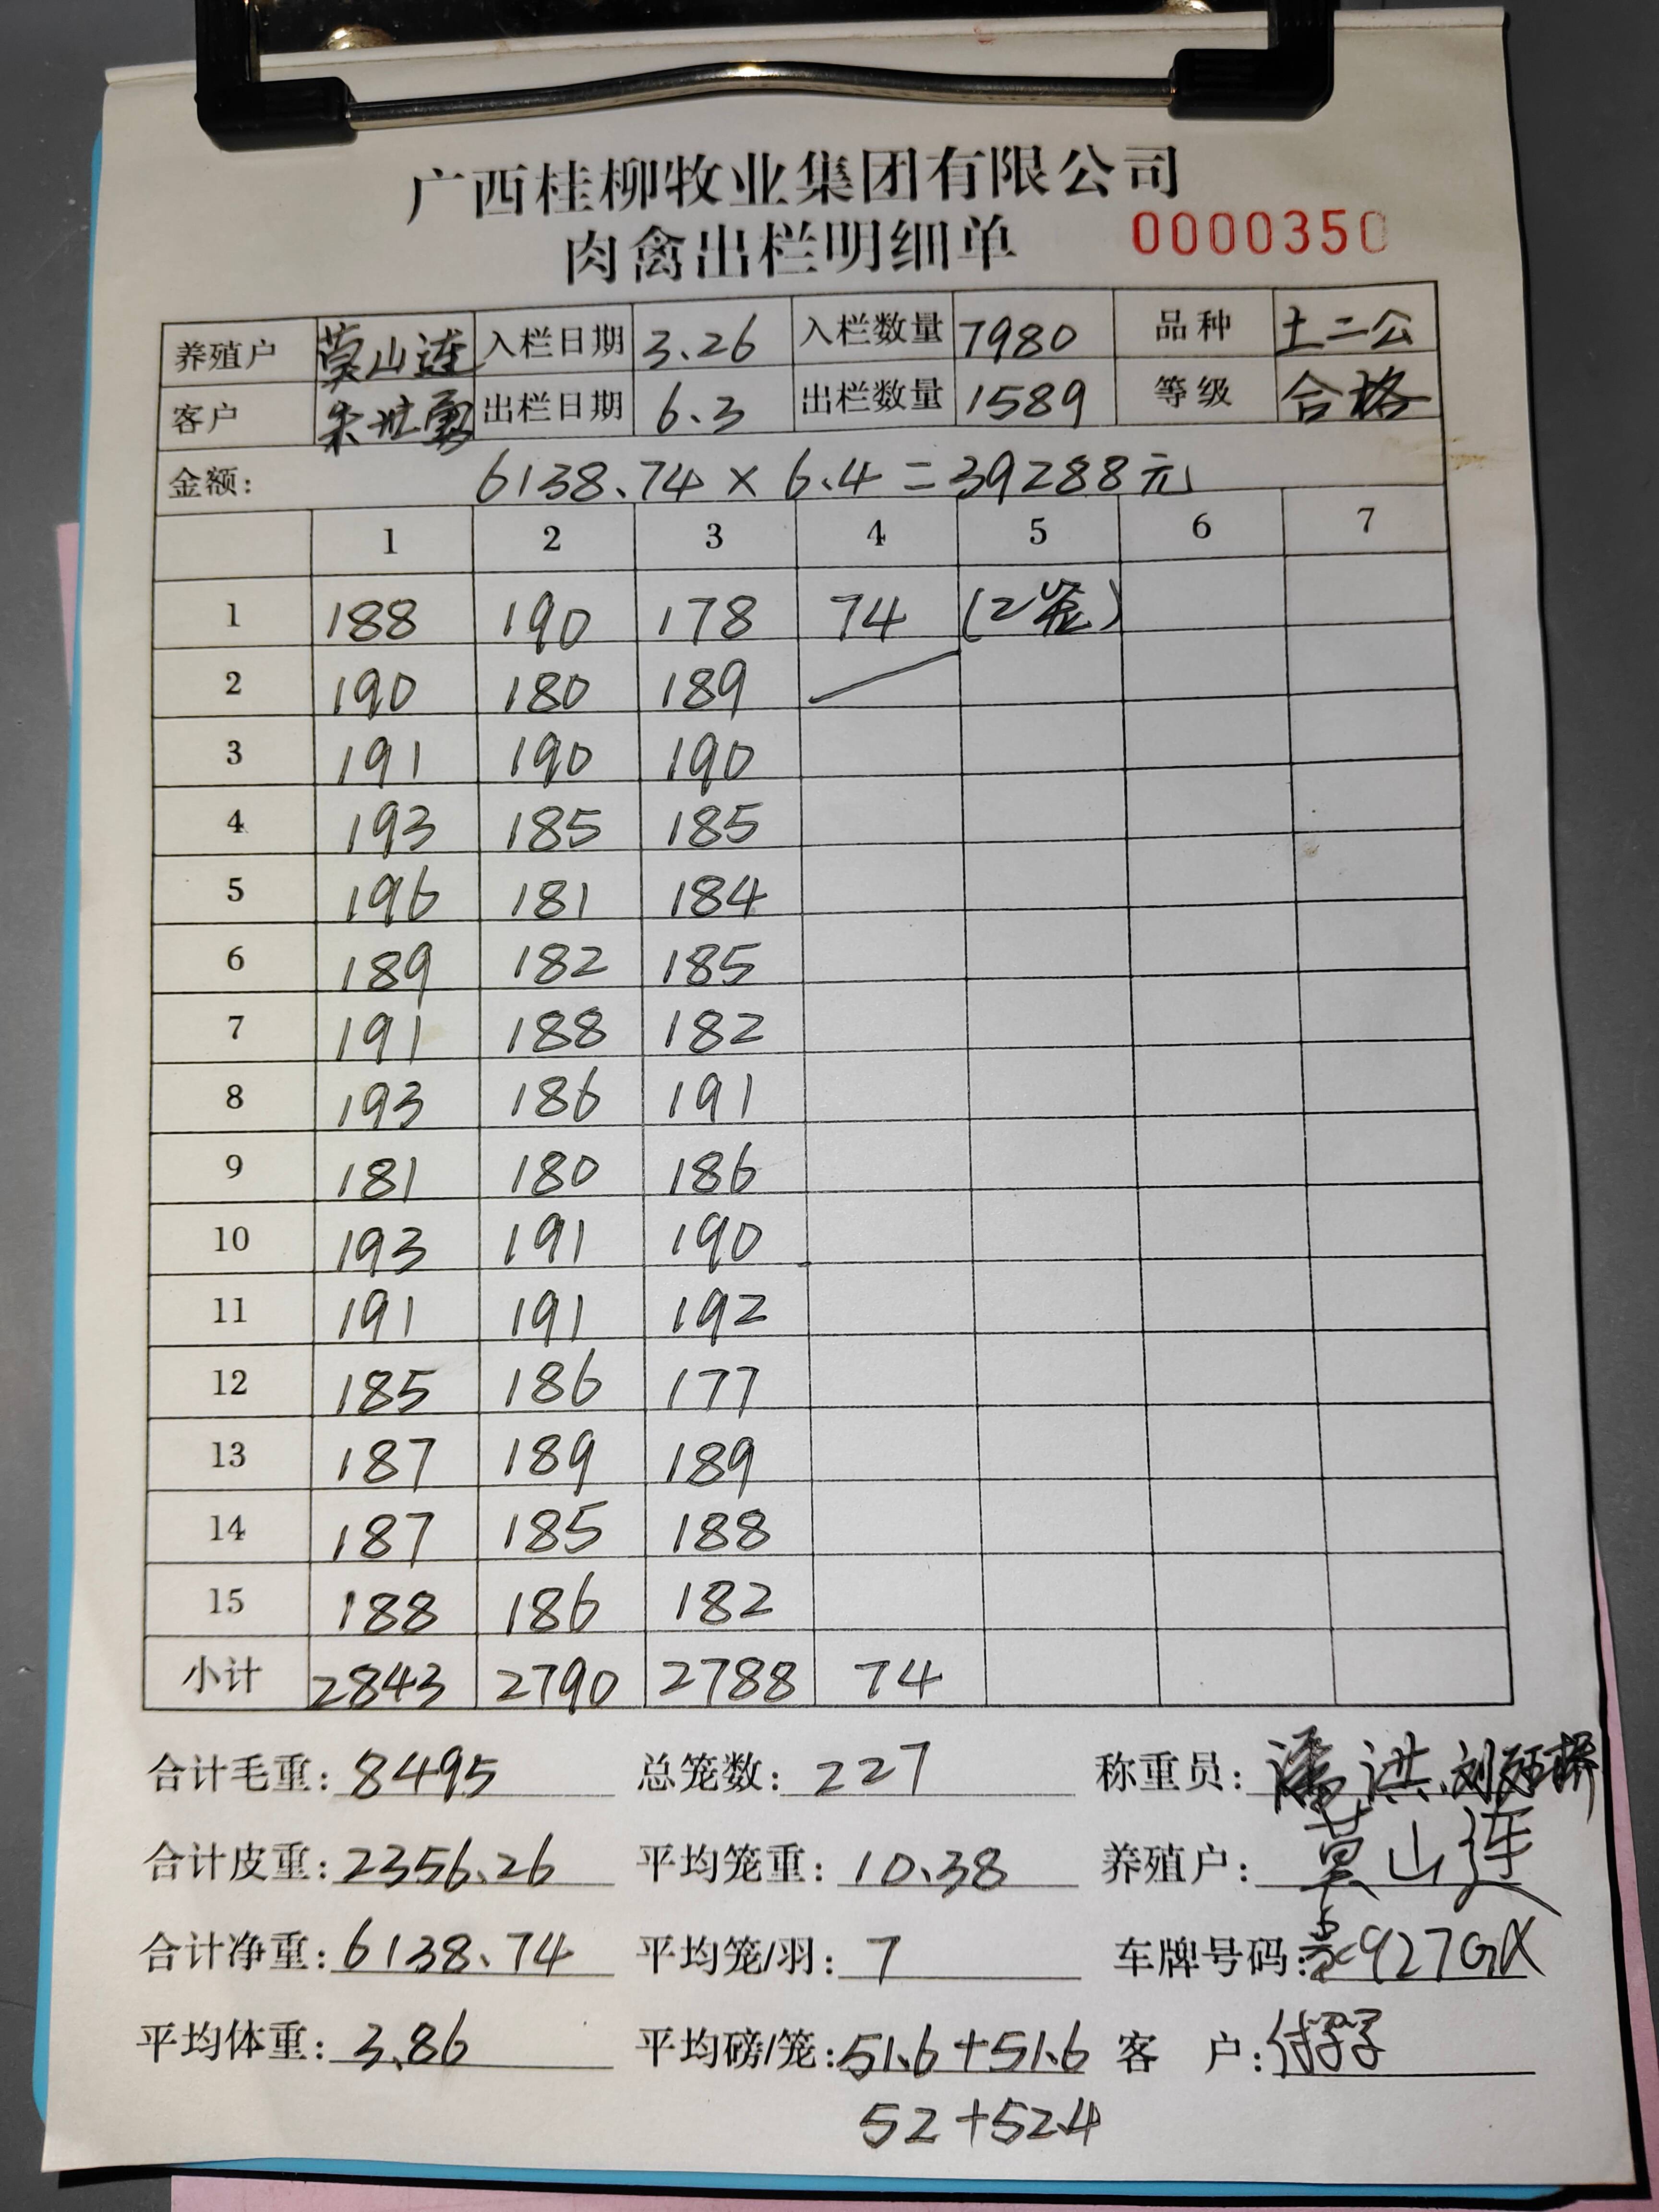 广西桂柳牧业集团有限公司
肉禽出栏明细单 0000350
养殖户 莫山连 入栏日期 3.26 入栏数量 7980 品种 土二公
客户 出栏日期 6.3 出栏数量 1589 等级 合格
金额: 6138.74 × 6.4 = 39288元
1 2 3 4 5 6 7
1 188 190 178 74 (2笼)
2 190 180 189
3 191 190 190
4 193 185 185
5 196 181 184
6 189 182 185
7 191 188 182
8 193 186 191
9 181 180 186
10 193 191 190
11 191 191 192
12 185 186 177
13 187 189 189
14 187 185 188
15 188 186 182
小计 2843 2790 2788 74
合计毛重: 8495 总笼数: 227 称重员: 潘洪、刘
合计皮重: 2356.26 平均笼重: 10.38 养殖户: 莫山连
合计净重: 6138.74 平均笼/羽: 7 车牌号码: 927GX
平均体重: 3.86 平均磅/笼: 51.6+51.6 客 户:
52+52.4